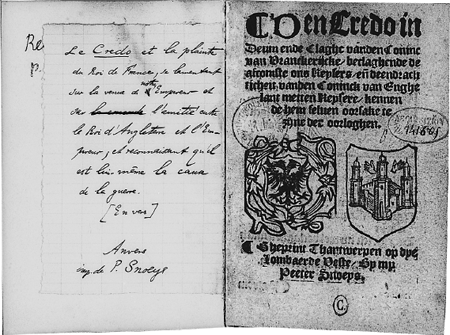 Re
Le Credo et la plainte
du Roi de France, se lamentant
sur la venue de notre Empereur et
sur l'amitié entre
le Roi d'Angleterre et l'Em-
pereur, et reconnaissant qu'il
est lui-même la cause
de la guerre.
[En vers]
Anvers
imp. de P. Snoeys
Den Credo in
Deum ende Claghe vanden Coninc
van Vranckerijcke, beclaghende de
aencomste ons Keysers, en deendrach
ticheyt vanden Coninck van Enghe
lant metten Keysere, kennen
de hem seluen oorsake te
zijne der oorloghen.
Gheprint Thantwerpen op dye
Lombaerde Veste, By my
Peeter Snoeys.
C.